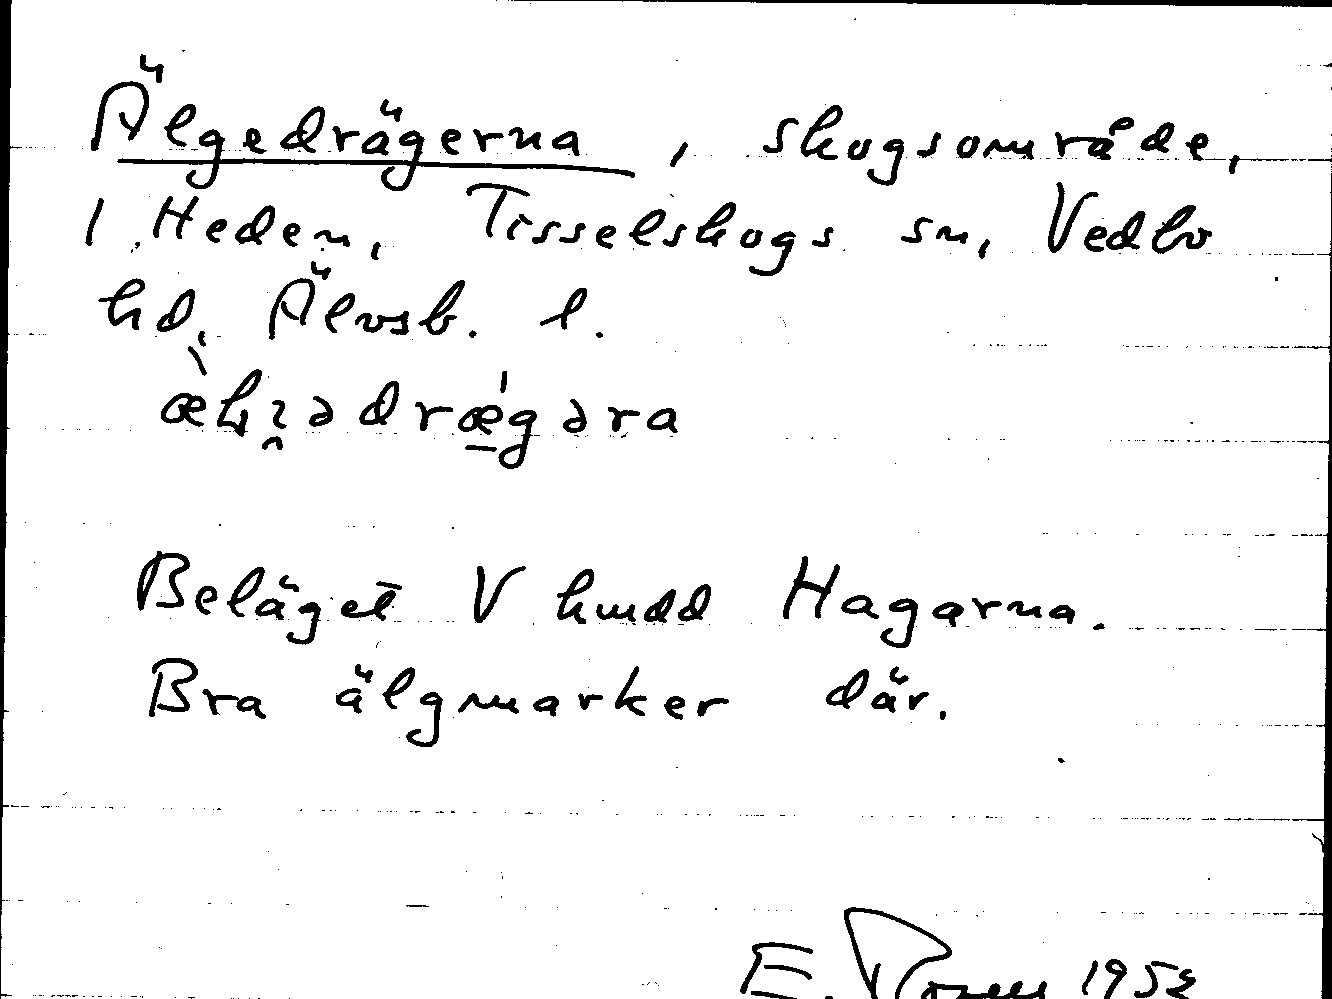 Älgedrägerna, skogsområde,
1 Heden, Tisselskogs sn, Vedbo
hd, Älvsb. l.
Beläget V hmdd Hagarna.
Bra älgmarker där.
E. 1952